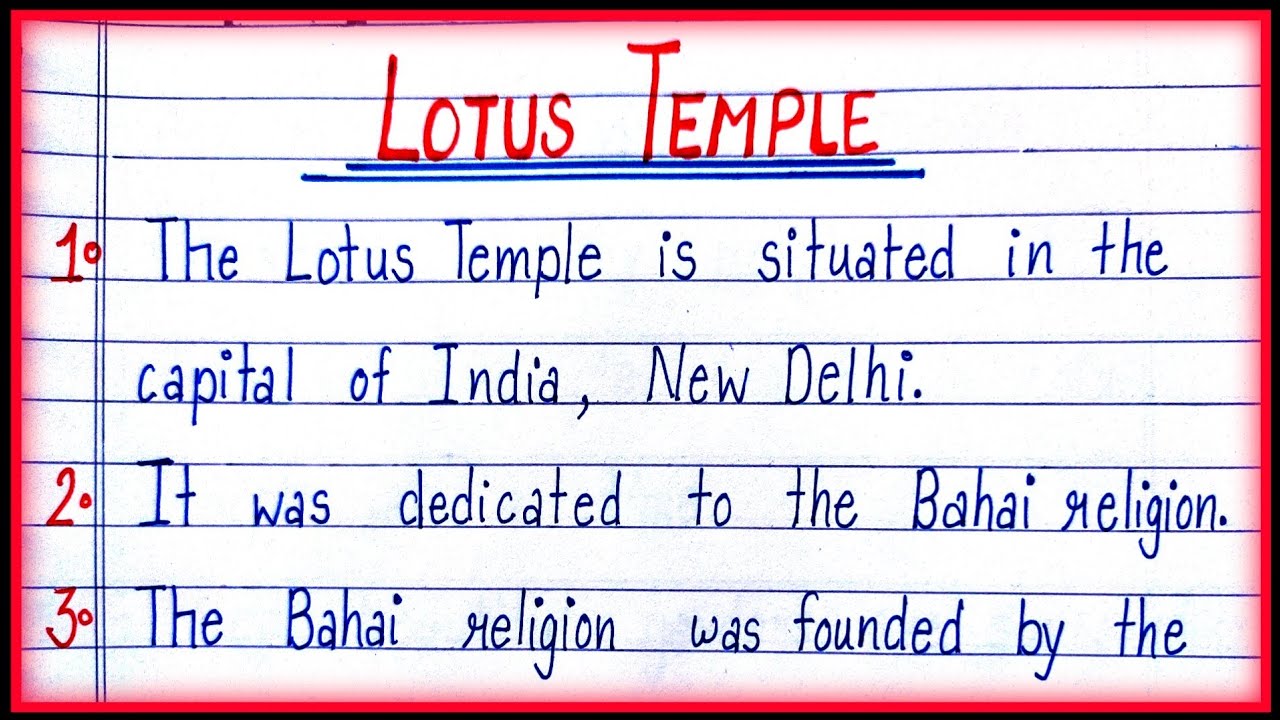 LOTUS TEMPLE
1. The Lotus Temple is situated in the
capital of India, New Delhi.
2. It was dedicated to the Bahai religion.
3. The Bahai religion was founded by the